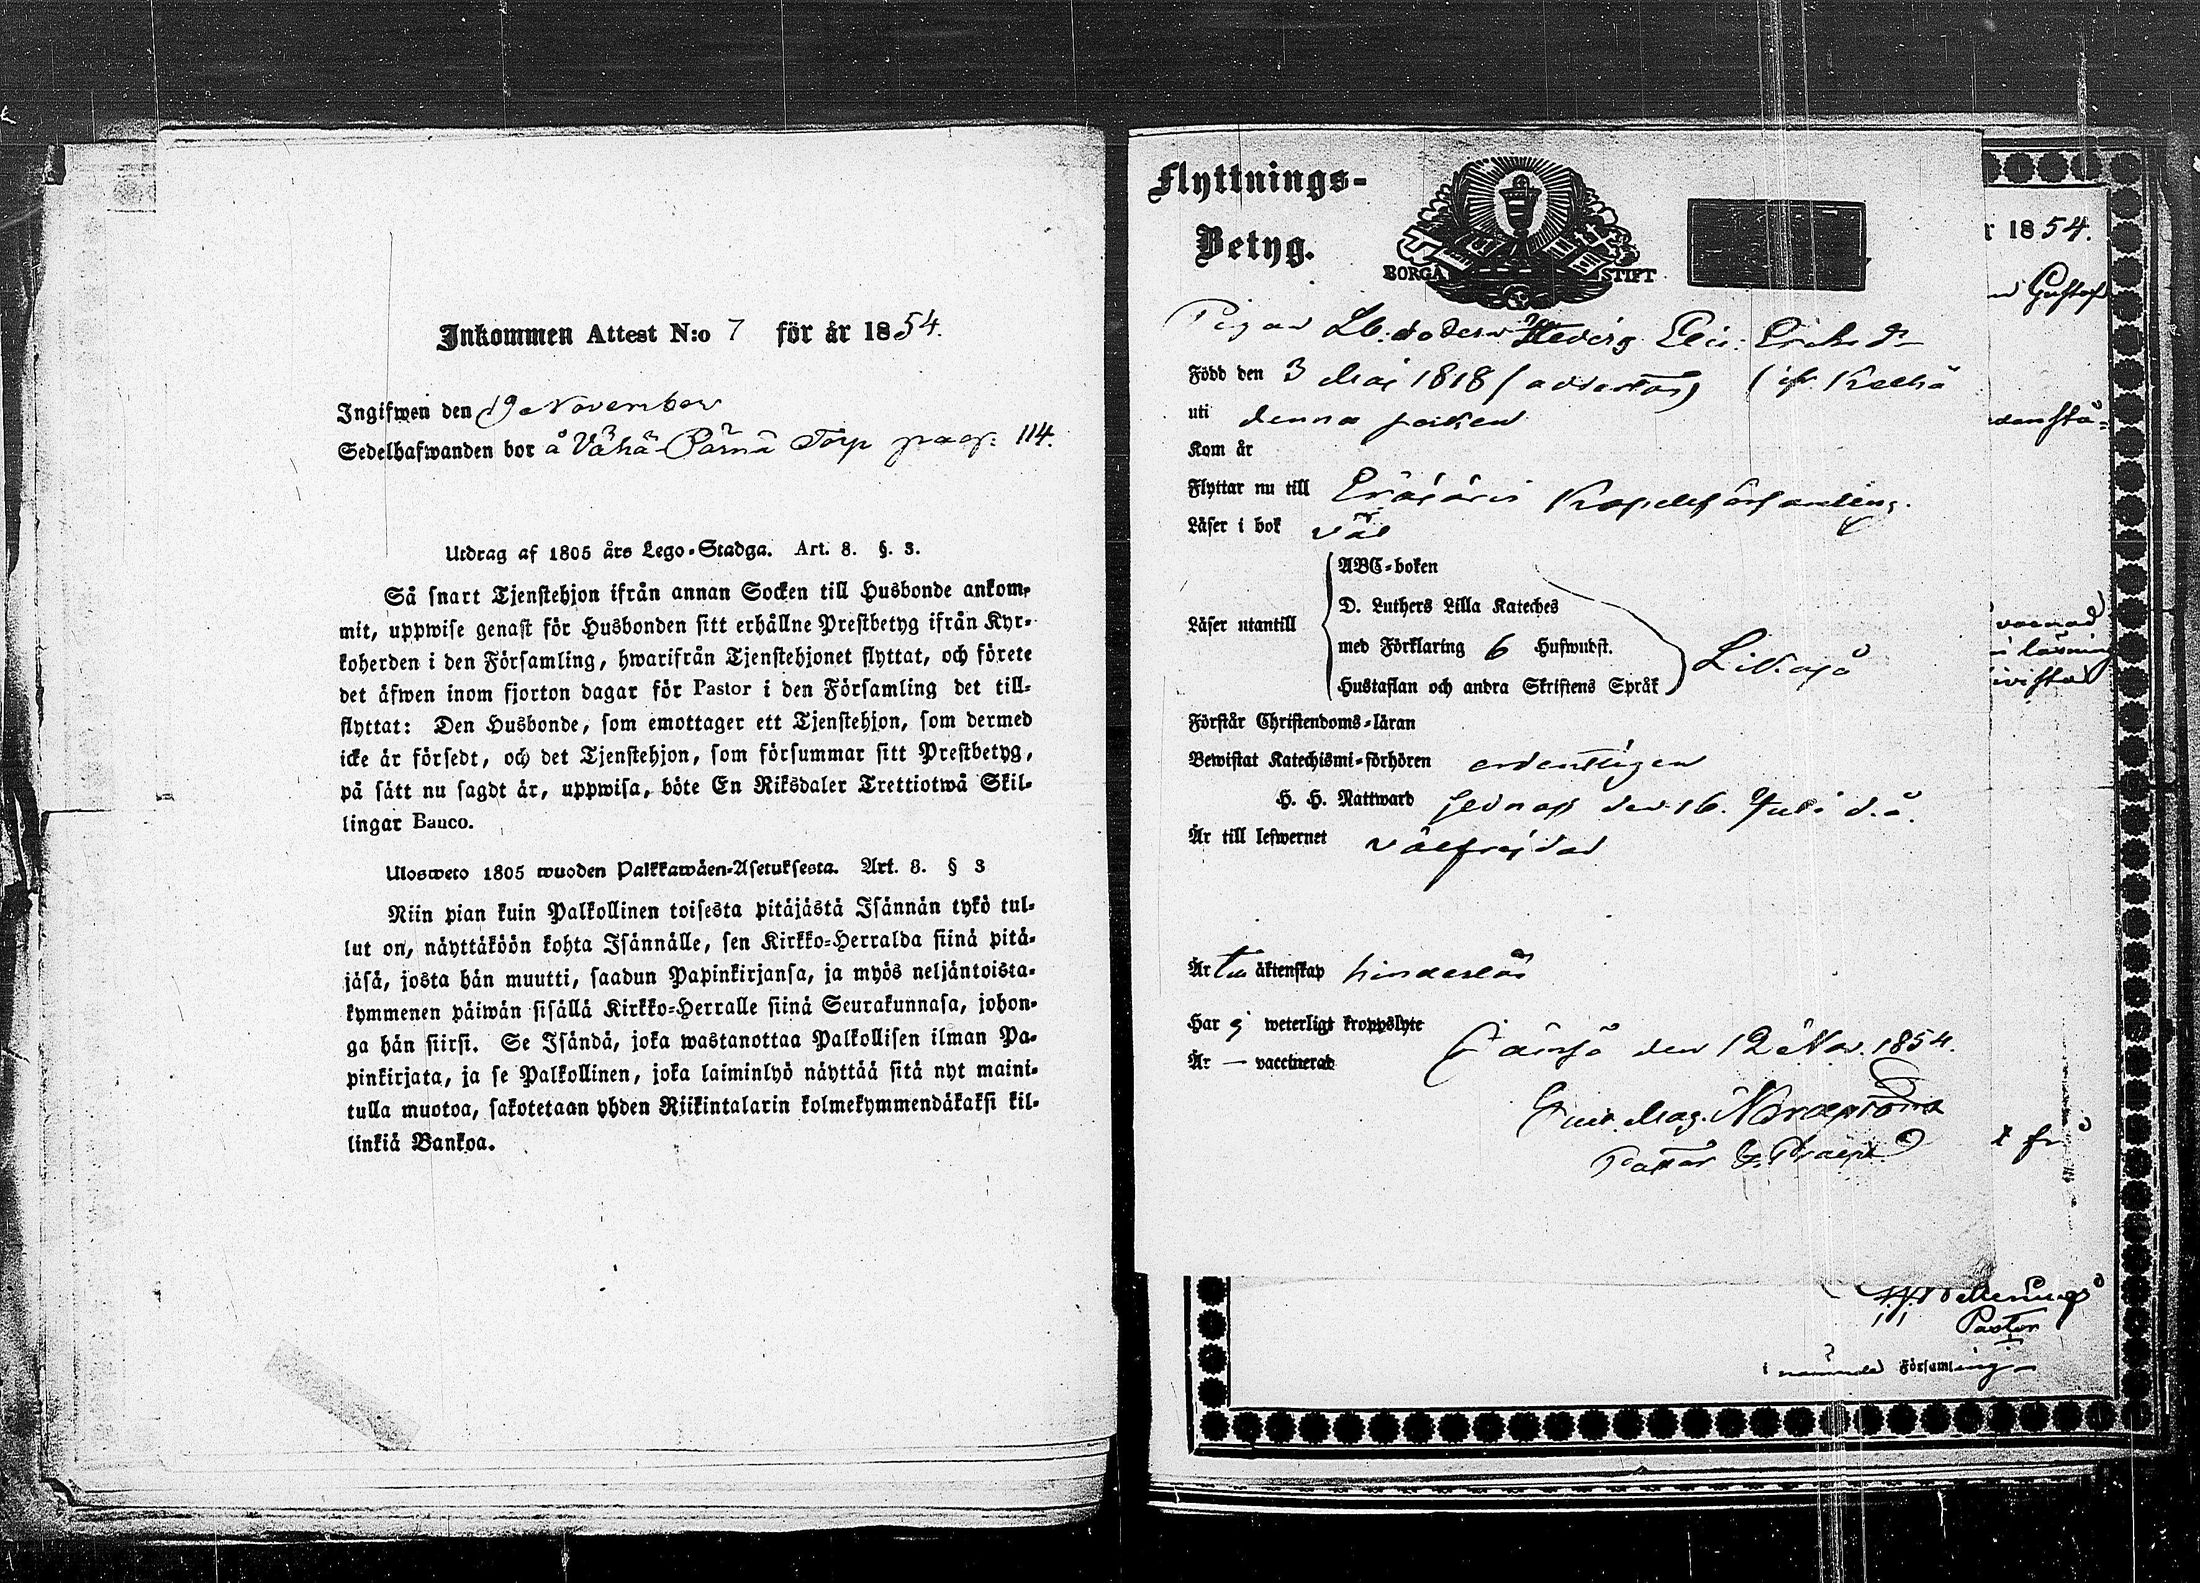 Inkommen Attest N:o 7 för år 1854.
Ingifwen den 19 November
Sedelhafwanden bor å Vähä Pärnä Torp pag: 114.
Utdrag af 1805 års Lego-Stadga. Art. 8. §. 3.
Så snart Tjenstehjon ifrån annan Socken till Husbonde ankom-
mit, uppwise genast för Husbonden sitt erhållne Prestbetyg ifrån Kyr-
koherden i den Församling, hwarifrån Tjenstehjonet flyttat, och förete
det äfwen inom fjorton dagar för Pastor i den Församling det till-
flyttat: Den Husbonde, som emottager ett Tjenstehjon, som dermed
icke är försedt, och det Tjenstehjon, som försummar sitt Prestbetyg,
på sätt nu sagdt är, uppwisa, böte En Riksdaler Trettiotwå Skil-
lingar Banco.
Ulosweto 1805 wuoden Palkkawäen-Asetuksesta. Art. 8. § 3
Niin pian kuin Palkollinen toisesta pitäjästä Isännän tykö tul-
lut on, näyttäköön kohta Isännälle, sen Kirkko-Herralda siinä pitä-
jäsä, josta hän muutti, saadun Papinkirjansa, ja myös neljäntoista-
kymmenen päiwän sisällä Kirkko-Herralle siinä Seurakunnasa, johon-
ga hän siirsi. Se Isändä, joka wastanottaa Palkollisen ilman Pa-
pinkirjata, ja se Palkollinen, joka laiminlyö näyttää sitä nyt maini-
tulla muotoa, sakotetaan yhden Riikintalarin kolmekymmendäkaksi kil-
linkiä Bankoa.
Flyttnings-
Betyg.
BORGÅ STIFT
Pigan Lb: dottern Hedvig Elis: Eriksdr
Född den 3 Maj 1818
uti denna socken
Kom år
Flyttar nu till Eräjärvi Kapellförsamling.
Läser i bok väl
Läser utantill
ABC-boken
D. Luthers Lilla Kateches
med Förklaring 6 Hufwudst.
Hustaflan och andra Skriftens Språk
Likaså
Förstår Christendoms-läran
Bewistat Katechismi-förhören ordentligen
H. H. Nattward sednast den 16. Juli d.å.
Är till lefwernet välfrejdad
Är till äktenskap hinderlös
Har ej weterligt kroppslyte
Är — vaccinerad
Jämsä den 12 Nov. 1854.
Pastor & Praep.
r 1854.
n Gustaf
Pastor
i nämnde Församling